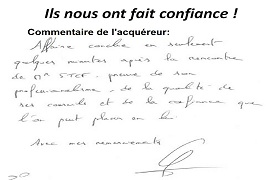 Ils nous ont fait confiance !
Commentaire de l'acquéreur:
Affaire conclue en seulement
quelques minutes après la rencontre
de Mr , preuve de son
professionnalisme, de la qualité de
ses conseils et de la confiance que
l'on peut placer en lui.
Avec mes remerciements